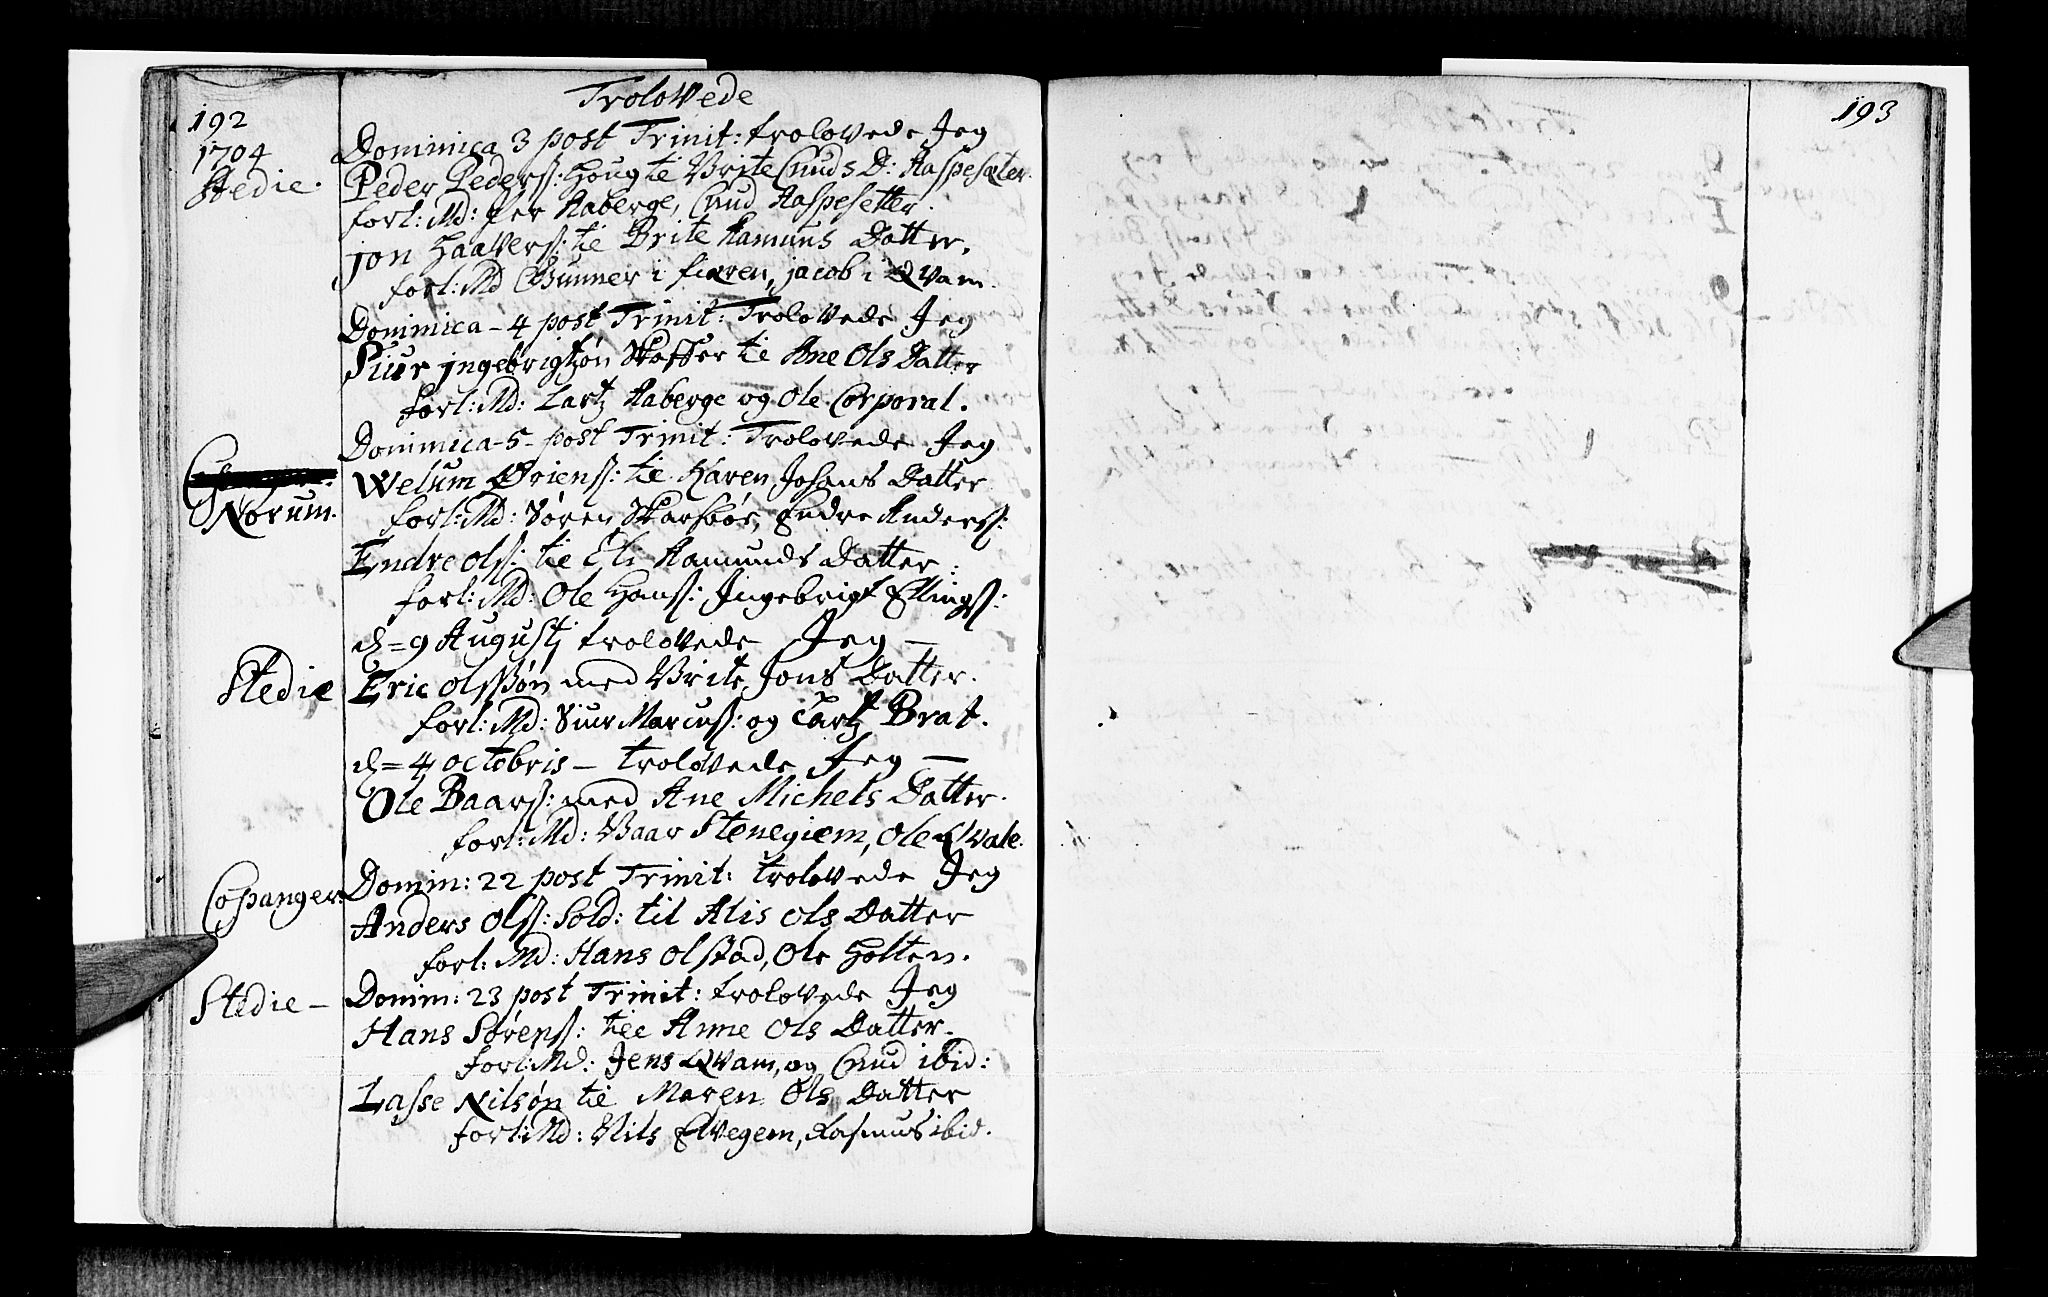 Trolovede
192
1704
Stedie.
Dominica 3 post Trinit: trolovede Jeg
Peder Peders: Houg til Brite Cnuds D: Aaspesæter.
forl: Md: Per Aaberge, Cnud Aaspesetter.
jon Haavers: til Brite Aamuns Datter.
forl: Md Gunner i fiæren, jacob i Qvam.
Dominica - 4 post Trinit: Trolovede Jeg
Siur jngebrigtzøn Skaffer til Ane Ols Datter
forl: Md: Lartz Aaberge og Ole Corporal.
Dominica - 5 - post Trinit: Trolovede Jeg
Norum.
Welum Ørienss: til Karen Johans Datter
forl: Md: Søren Skarsbøe, Endre Anderss:
Endre Olss: til Eli Aamunds Datter:
forl: Md: Ole Hanss: Jngebrigt Ellingss:
d = 9 Augustj trolovede Jeg —
Stedie
Eric Olssøn med Brite Jons Datter.
forl: Md: Siur Marcuss: og Lartz Brat.
d = 4 octobris - trolovede Jeg —
Ole Baarss: med Ane Michels Datter.
forl: Md: Baar Stenegiem, Ole Qvale.
Copanger
Domin: 22 post Trinit: trolovede Jeg
Anders Olss: Sold: til Alis Ols Datter
forl: Md: Hans Olstad, Ole Holten.
Stedie -
Domin: 23 post Trinit: trolovede Jeg
Hans Sørenss: til Anne Ols Datter.
forl: Md: Jens Qvam, og Cnud ibid:
Lasse Nilsøn til Maren Ols Datter
forl: Md: Nils Elvegem, Rasmus ibid.
193